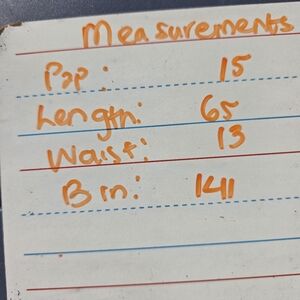 Measurements
Pop: 15
Length: 65
Waist: 13
B in: 141